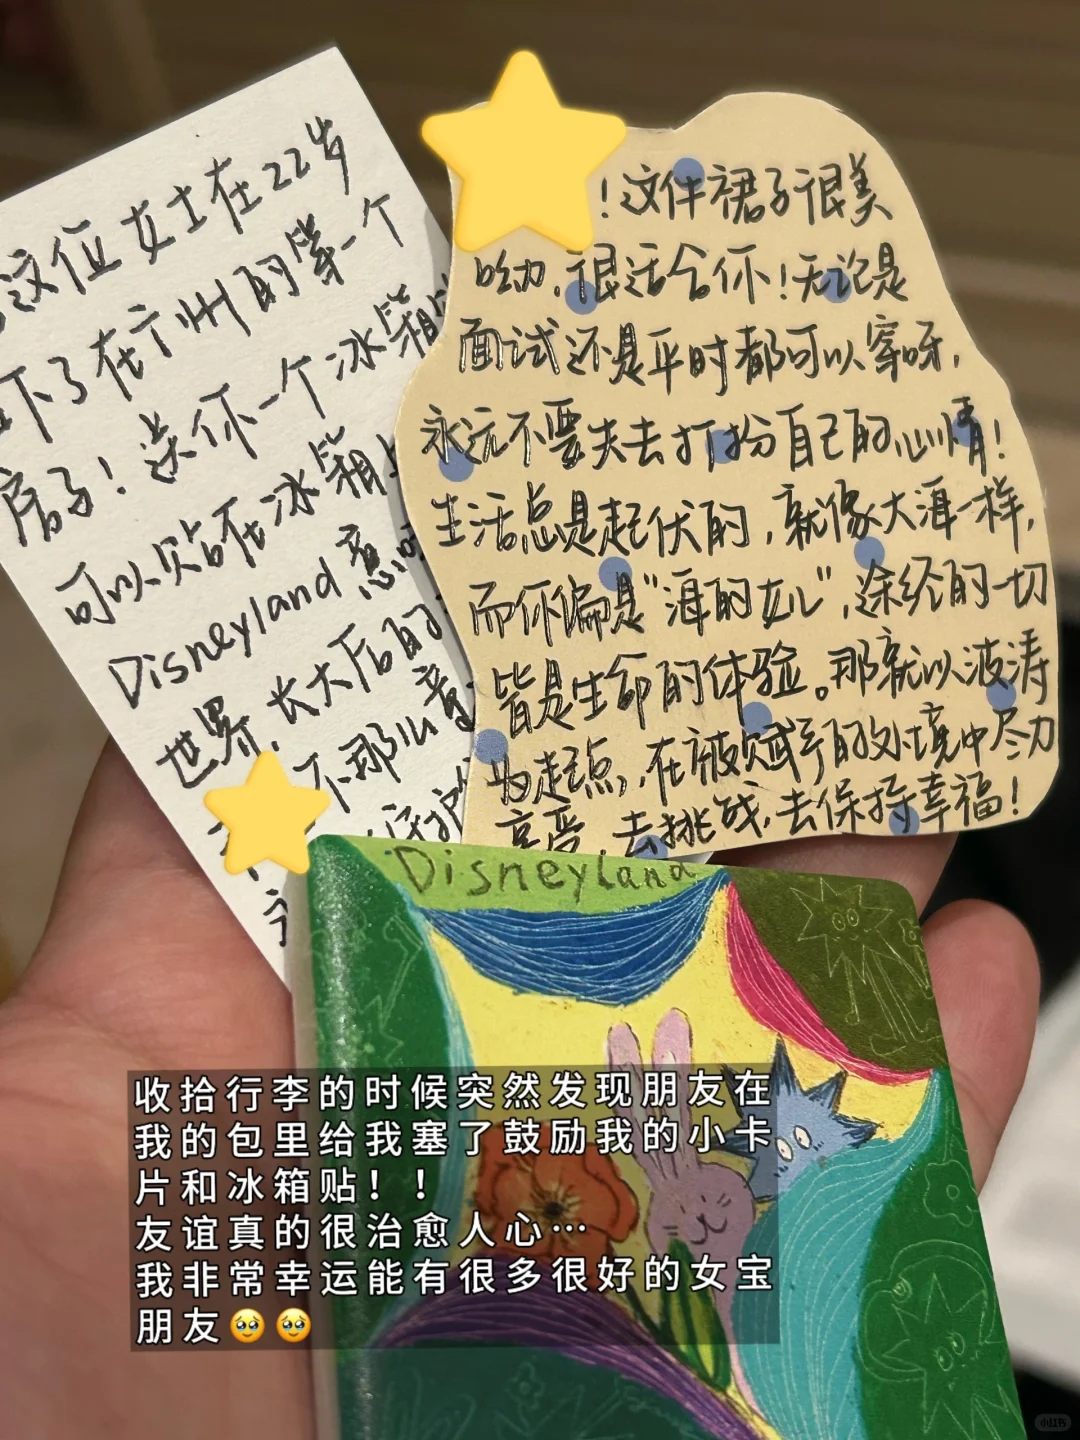 这位女士在22岁
下了在广州的第一个
房子！送你一个冰箱
可以贴在冰箱上
Disneyland 意
世界，长大后的
不那么
守护
！这件裙子很美
呦，很适合你！无论是
面试还是平时都可以穿呀，
永远不要失去打扮自己的心情！
生活总是起伏的，就像大海一样，
而你偏是“海的女儿”，途经的一切
皆是生命的体验。那就以波涛
为起点，在被赋予的处境中尽力
享受，去挑战，去保持幸福！
Disneyland
收拾行李的时候突然发现朋友在
我的包里给我塞了鼓励我的小卡
片和冰箱贴！！
友谊真的很治愈人心…
我非常幸运能有很多很好的女宝
朋友🥹🥹
小红书